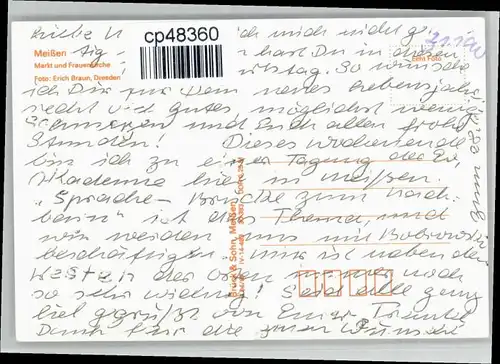 cp48360
Liebe ... ich mich nicht
... hast Du in diesen
Meißen
Markt und Frauenkirche
Foto: Erich Braun, Dresden
Echt Foto
...tstag. So wünsche
ich Dir für Dein neues Lebensjahr
recht viel gutes, möglichst wenig
Schmerzen und Euch allen frohe
Stunden! Dieses Wochenende
bin ich zu einer Tagung der Ev.
Akademie hier in Meißen.
"Sprache - Brücke zum Nach-
barn" ist das Thema und
wir werden uns mit Bobrowski
beschäftigen. Mir ist neben dem
Westen der Osten immer noch
so sehr wichtig! Seid alle ganz
viel gegrüßt von Eurer
Dank für die guten Wünsche
zum
Brück & Sohn, Meißen